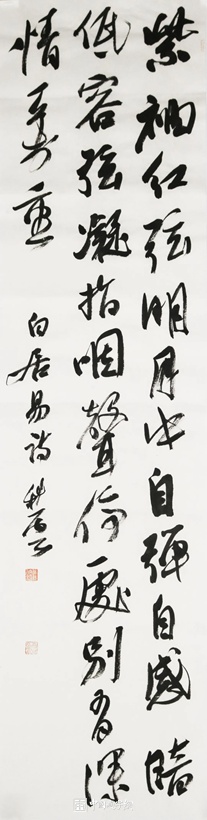 紫袖紅弦明月中自彈自感暗
低容弦凝指咽聲停處別有深
情一万重
白居易詩